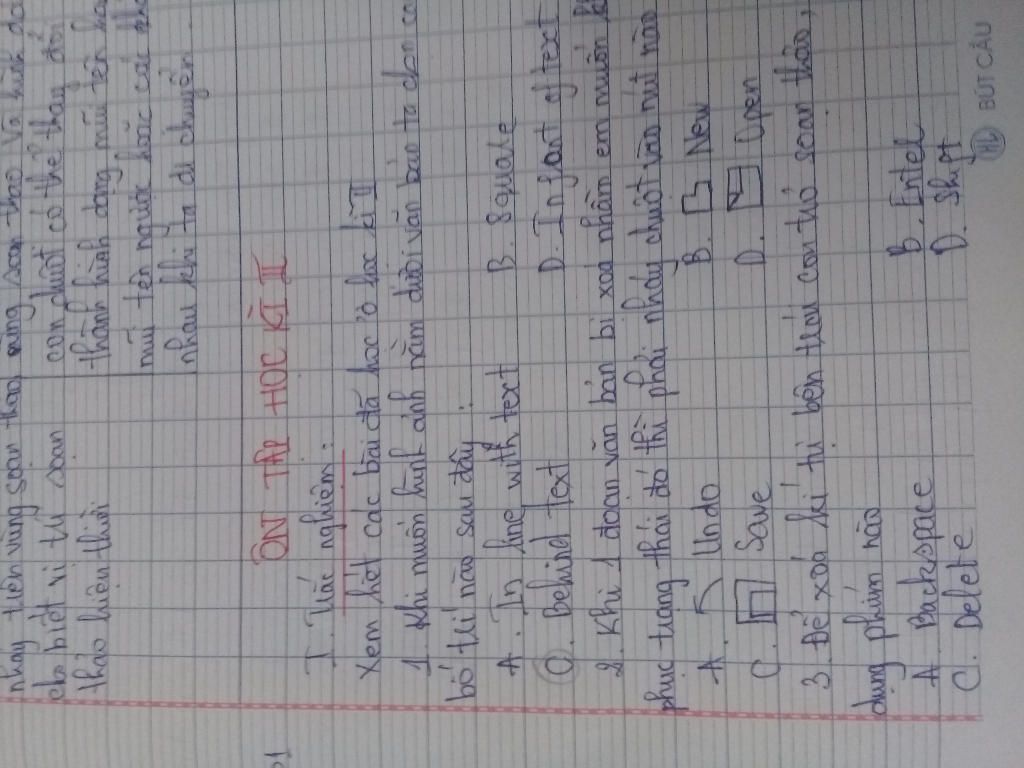 nháy tiên vùng soạn thảo vùng soạn thảo và hình
cho biết vị trí soạn con chuột có thể thay đổi
thảo hiện thời thành hình dạng mũi tên
mũi tên ngược hoặc các
nhau khi ta di chuyển.
ÔN TẬP HỌC KÌ II
I. Trắc nghiệm:
Xem hết các bài đã học ở học kì II
1. Khi muốn hình ảnh nằm dưới văn bản ta chọn
bố trí nào sau đây:
A. In line with text B. Square
C. Behind Text D. In font of text
2. Khi 1 đoạn văn bản bị xoá nhầm em muốn
phục trạng thái đó thì phải nháy chuột vào nút nào
A. Undo B. New
C. Save D. Open
3. Để xoá kí tự bên trái con trỏ soạn thảo,
dùng phím nào
A. Backspace B. Enter
C. Delete D. Shift
BÚT CÂU